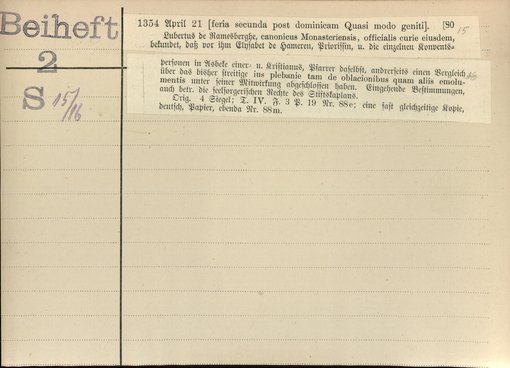 Beiheft
2
S 15/16
1354 April 21 [feria secunda post dominicam Quasi modo geniti]. [80
15
Lubertus de Ramesberghe, canonicus Monasteriensis, officialis curie eiusdem,
bekundet, daß vor ihm Elysabet de Hameren, Priorissin, u. die einzelnen Konvents-
personen in Asbeke einer- u. Kristianus, Pfarrer daselbst, andrerseits einen Vergleich
16
über das bisher streitige ius plebanie tam de oblacionibus quam aliis emolu-
mentis unter seiner Mitwirkung abgeschlossen haben. Eingehende Bestimmungen,
auch betr. die seelsorgerischen Rechte des Stiftskaplans.
Orig. 4 Siegel; T. IV. F. 3 P. 19 Nr. 88e; eine fast gleichzeitige Kopie,
deutsch, Papier, ebenda Nr. 88m.